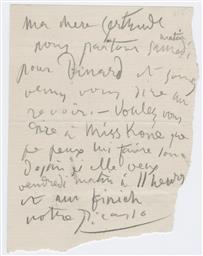 Ma chere Gertrude
nous partons samedi
matin
pour Dinard et
venus vous dire au
revoir – Voulez vous
a Miss Kone que
je peux lui faire son
dessin si elle veux
vendredi matin à 11 heures
et
votre Picasso